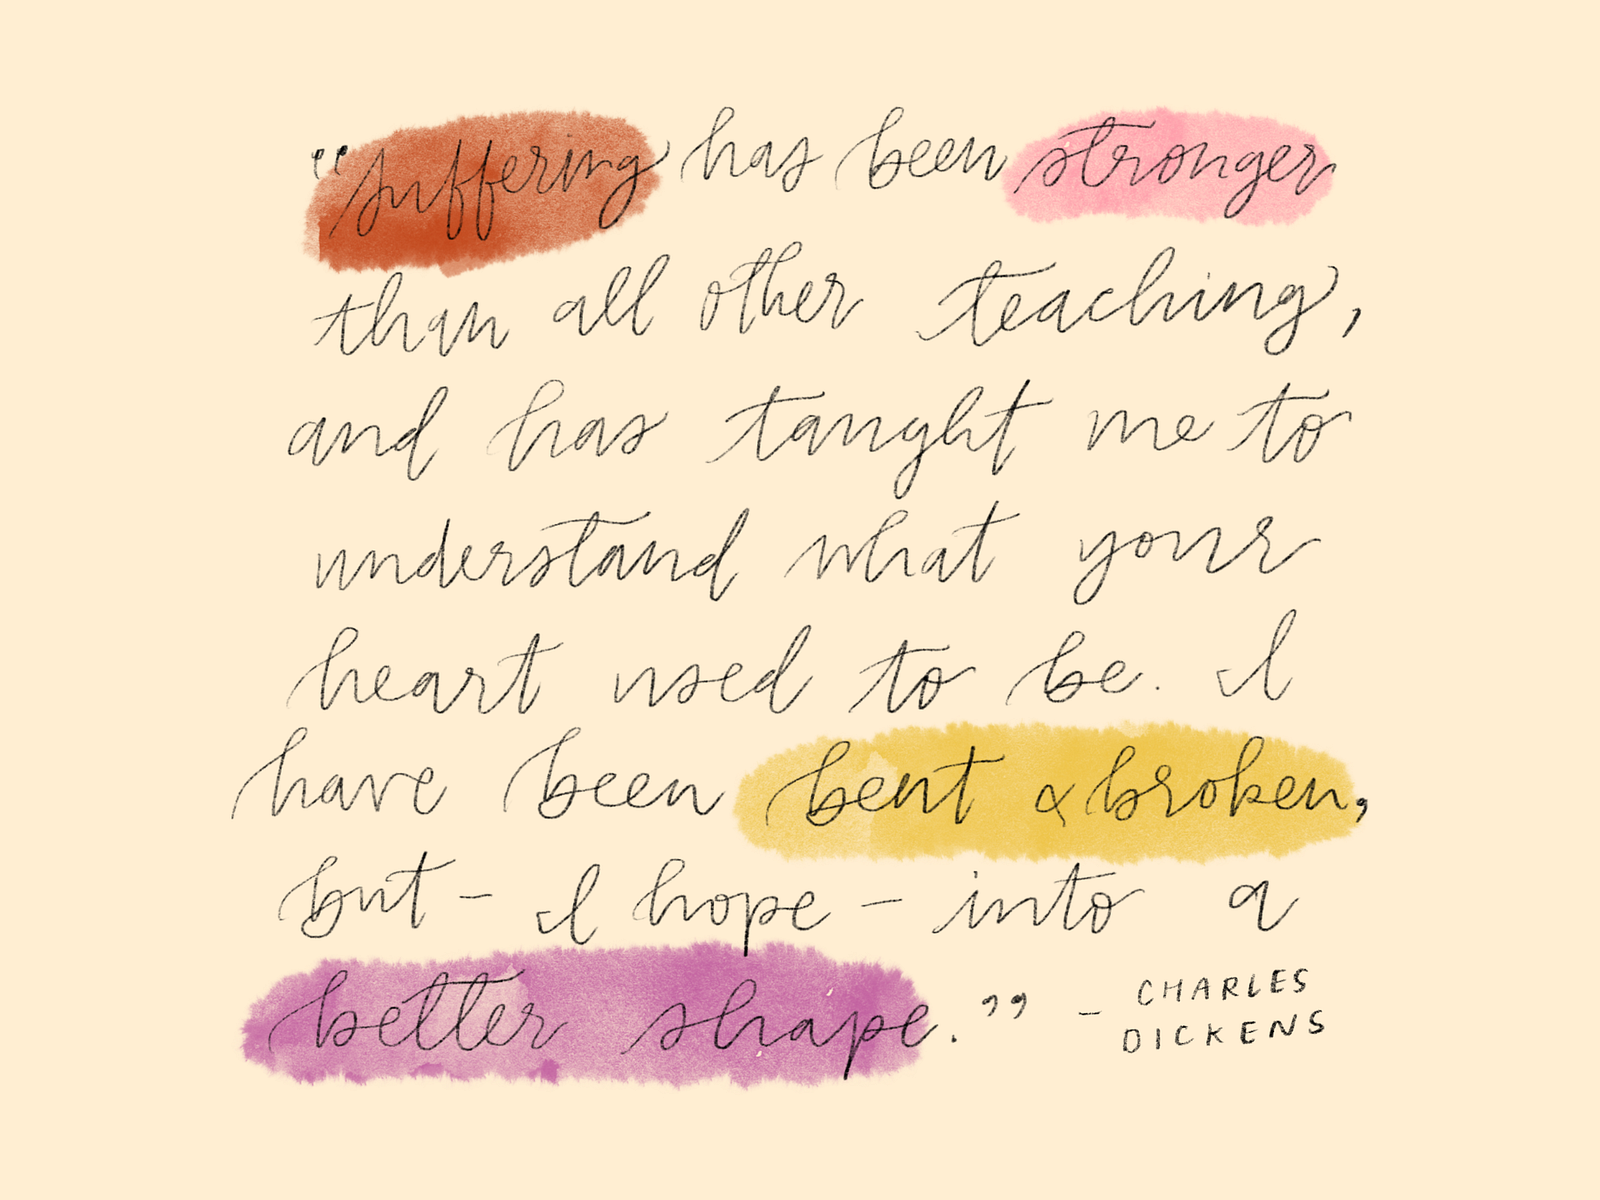 “suffering has been stronger
than all other teaching,
and has taught me to
understand what your
heart used to be. I
have been bent & broken,
but – I hope – into a
better shape.” – CHARLES
DICKENS